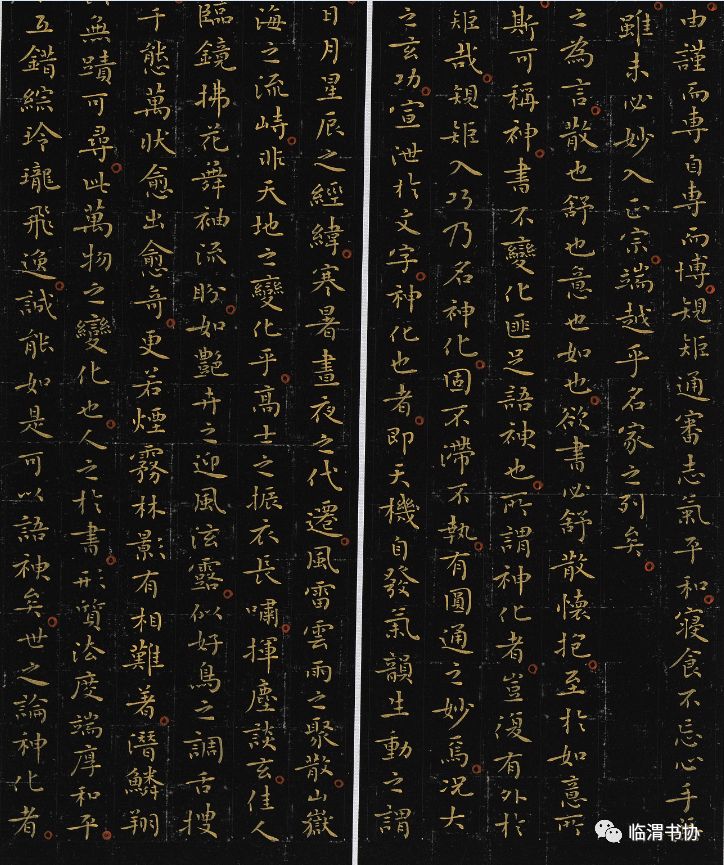 由謹而專自專而博規矩通審志氣平和寢食不忘心手
雖未必妙入正宗端越乎名家之列矣
之為言散也舒也意也如也欲書必舒散懷抱至於如意所
斯可稱神書不變化匪足語神也所謂神化者豈復有外於
矩哉規矩入巧乃名神化固不滯不執有圓通之妙焉況大
之玄功宣泄於文字神化也者即天機自發氣韻生動之謂
日月星辰之經緯寒暑晝夜之代遷風雷雲雨之聚散山嶽
海之流峙非天地之變化乎高士之振衣長嘯揮麈談玄佳人
臨鏡拂花舞袖流盼如艷卉之迎風泫露似好鳥之調舌搜
千態萬狀愈出愈奇更若煙霧林影有相難著潛鱗翔
無蹟可尋此萬物之變化也人之於書形質法度端厚和平
五錯綜玲瓏飛逸誠能如是可以語神矣世之論神化者
临渭书协